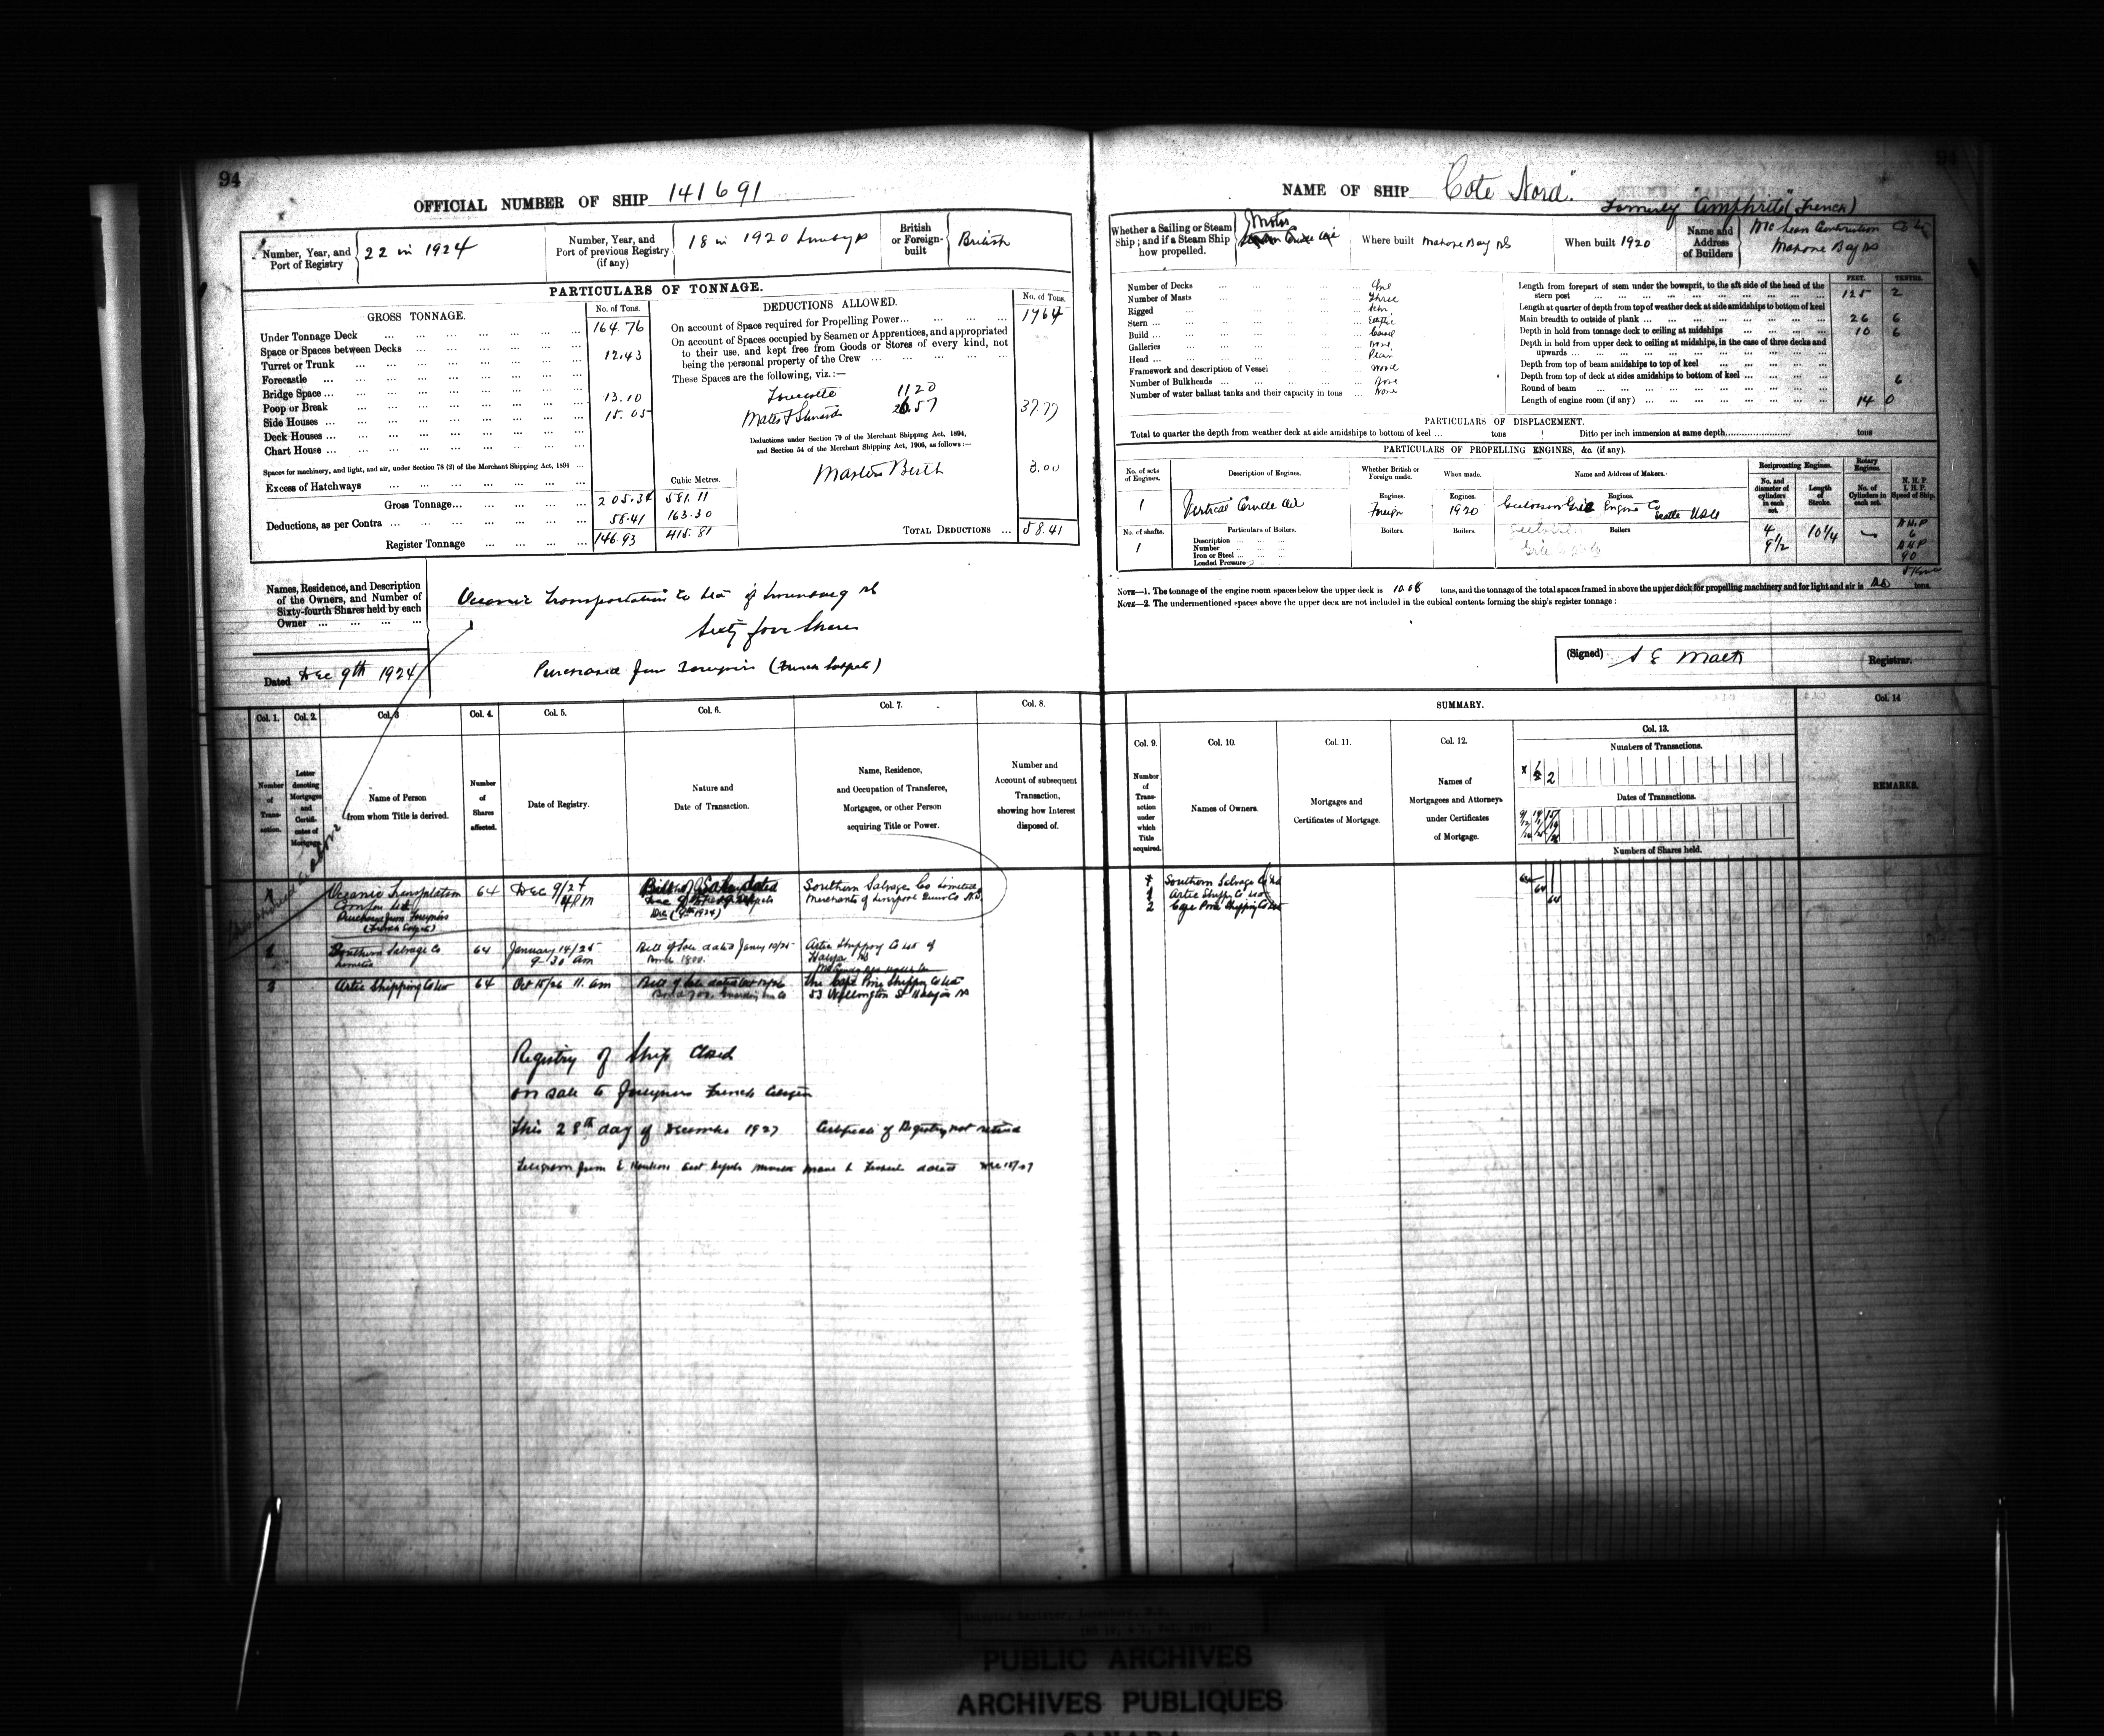 94
OFFICIAL NUMBER OF SHIP 141691
Number, Year, and Port of Registry
22 in 1924
Number, Year, and Port of previous Registry (if any)
18 in 1920
British or Foreign-built
British
PARTICULARS OF TONNAGE.
GROSS TONNAGE.
No. of Tons.
Under Tonnage Deck ... 164.76
Space or Spaces between Decks ...
Turret or Trunk ... 12.43
Forecastle ...
Bridge Space ...
Poop or Break ... 13.10
Side Houses ... 15.05
Deck Houses ...
Chart House ...
Spaces for machinery, and light, and air, under Section 78 (2) of the Merchant Shipping Act, 1894 ...
Excess of Hatchways ...
Cubic Metres.
Gross Tonnage... 205.34 581.11
Deductions, as per Contra ... 58.41 163.30
Register Tonnage ... 146.93 415.81
DEDUCTIONS ALLOWED.
No. of Tons.
On account of Space required for Propelling Power... 17 64
On account of Spaces occupied by Seamen or Apprentices, and appropriated
to their use, and kept free from Goods or Stores of every kind, not
being the personal property of the Crew ...
These Spaces are the following, viz.:—
11 20
26.57
37.77
Deductions under Section 79 of the Merchant Shipping Act, 1894,
and Section 54 of the Merchant Shipping Act, 1906, as follows:—
Masters Berth 3.00
TOTAL DEDUCTIONS ... 58.41
Names, Residence, and Description
of the Owners, and Number of
Sixty-fourth Shares held by each
Owner ...
Oceanic Transportation Co Ltd of Lunenburg NS
Sixty four Shares
Purchased from Foreigners (French Subjects)
Dated Dec 9th 1924
Col. 1. Col. 2. Col. 3 Col. 4. Col. 5. Col. 6. Col. 7. Col. 8.
Number of Transaction.
Letter denoting Mortgages and Certificates of Mortgage.
Name of Person from whom Title is derived.
Number of Shares affected.
Date of Registry.
Nature and Date of Transaction.
Name, Residence, and Occupation of Transferee, Mortgagee, or other Person acquiring Title or Power.
Number and Account of subsequent Transaction, showing how Interest disposed of.
64 Dec 9/24 4 PM
Bill of Sale dated
Southern Salvage Co Limited
Merchants of Liverpool
Southern Salvage Co Limited
64 January 14/25 9-30 am
Bill of Sale dated Jany 10/25
Artic Shipping Co Ltd of
Artic Shipping Co Ltd
64 Oct 15/26 11. am
The Cape Pine Shipping Co Ltd
53 Wellington St Halifax NS
Registry of Ship Closed
on sale to Foreigners French
This 28th day of December 1927 Certificate of Registry not
Telegram from
94
NAME OF SHIP "Cote Nord"
Formerly
(French)
Whether a Sailing or Steam Ship; and if a Steam Ship how propelled.
Motor
Where built Mahone Bay NS
When built 1920
Name and Address of Builders
McLean Construction Co
Mahone Bay NS
Number of Decks ... One
Number of Masts ... Three
Rigged ...
Stern ... Elliptic
Build ... Carvel
Galleries ... None
Head ...
Framework and description of Vessel ... Wood
Number of Bulkheads ...
Number of water ballast tanks and their capacity in tons ... None
FEET. TENTHS.
Length from forepart of stem under the bowsprit, to the aft side of the head of the
stern post ... 125 2
Length at quarter of depth from top of weather deck at side amidships to bottom of keel
Main breadth to outside of plank ... 26 6
Depth in hold from tonnage deck to ceiling at midships ... 10 6
Depth in hold from upper deck to ceiling at midships, in the case of three decks and
upwards ...
Depth from top of beam amidships to top of keel ...
Depth from top of deck at sides amidships to bottom of keel ...
Round of beam ... 6
Length of engine room (if any) ... 14 0
PARTICULARS OF DISPLACEMENT.
Total to quarter the depth from weather deck at side amidships to bottom of keel ... tons Ditto per inch immersion at same depth... tons
PARTICULARS OF PROPELLING ENGINES, &c. (if any).
No. of sets of Engines.
Description of Engines.
Whether British or Foreign made.
When made.
Name and Address of Makers.
Reciprocating Engines.
Rotary Engines.
No. and diameter of cylinders in each set.
Length of Stroke.
No. of Cylinders in each set.
N. H. P. I. H. P. Speed of Ship.
1
Vertical Crude Oil
Engines. Foreign
Engines. 1920
Engines.
Engine Co
Seattle USA
No. of shafts.
1
Particulars of Boilers.
Description ...
Number ...
Iron or Steel ...
Loaded Pressure ...
Boilers. Boilers. Boilers
4
9 1/2
10 1/4
NHP
6
90
NOTE—1. The tonnage of the engine room spaces below the upper deck is 10.08 tons, and the tonnage of the total spaces framed in above the upper deck for propelling machinery and for light and air is tons.
NOTE—2. The undermentioned spaces above the upper deck are not included in the cubical contents forming the ship's register tonnage:
(Signed) Registrar.
SUMMARY.
Col. 9. Col. 10. Col. 11. Col. 12. Col. 13. Col. 14
Number of Transaction under which Title acquired.
Names of Owners.
Mortgages and Certificates of Mortgage.
Names of Mortgagees and Attorneys under Certificates of Mortgage.
Numbers of Transactions.
Dates of Transactions.
Numbers of Shares held.
REMARKS.
Southern Salvage Co Ltd
1 Artic Shipping Co Ltd
2 Cape Pine Shipping Co Ltd
64
64
Shipping Register, Lunenburg, N.S.
PUBLIC ARCHIVES
ARCHIVES PUBLIQUES
CANADA